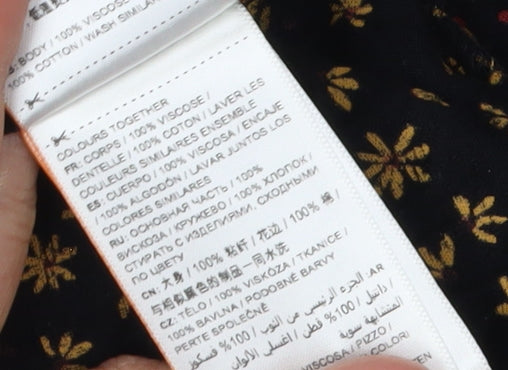 : BODY / 100% VISCOSE
100% COTTON / WASH SIMILAR
COLOURS TOGETHER
FR: CORPS / 100% VISCOSE /
DENTELLE / 100% COTON / LAVER LES
COULEURS SIMILAIRES ENSEMBLE
ES: CUERPO / 100% VISCOSA / ENCAJE
/ 100% ALGODÓN / LAVAR JUNTOS LOS
COLORES SIMILARES
RU: ОСНОВНАЯ ЧАСТЬ / 100%
ВИСКОЗА / КРУЖЕВО / 100% ХЛОПОК /
СТИРАТЬ С ИЗДЕЛИЯМИ, СХОДНЫМИ
ПО ЦВЕТУ
CN: 大身 / 100% 粘纤 / 花边 / 100% 棉 /
与相似颜色的制品一同水洗
CZ: TĚLO / 100% VISKÓZA / TKANICE /
100% BAVLNA / PODOBNÉ BARVY
PERTE SPOLEČNĚ
AR: الجزء الرئيسي من الثوب / 100% فسكوز
/ داخل / 100% قطن / اغسلي الألوان
المتشابهة سوية
VISCOSA / PIZZO /
COLORI